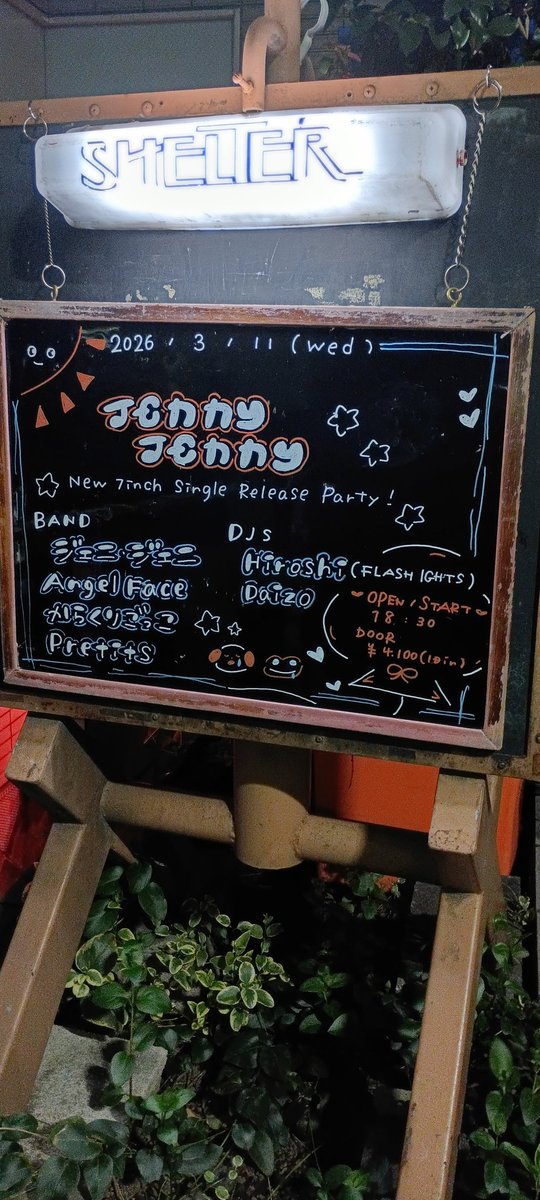 SHELTER
2026 / 3 / 11 (wed)
JENNY
JENNY
New 7inch Single Release Party!
BAND
ジェニージェニー
Angel Face
からくりごっこ
Pretits
DJs
Hiroshi (FLASH LIGHTS)
Daizo
OPEN / START
18:30
DOOR
¥4.100 (1Din)